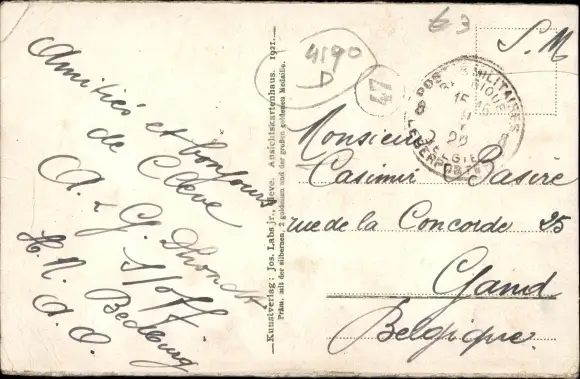 Amitiés et bonjours
de Clève
A. & G. Dhondt
S/off
H. M. Bedburg
A. O.
Kunstverlag: Jos. Labs jr., Cleve. Ansichtskartenhaus. 1921.
Präm. mit der silbernen, 2 goldenen und der großen goldenen Medaille.
4190
D
47
S. M
POSTES MILITAIRES
BELGIQUE
8
15
LEGERPOSTERIJ
Monsieur
Casimir Basire
rue de la Concorde 25
Gand
Belgique.